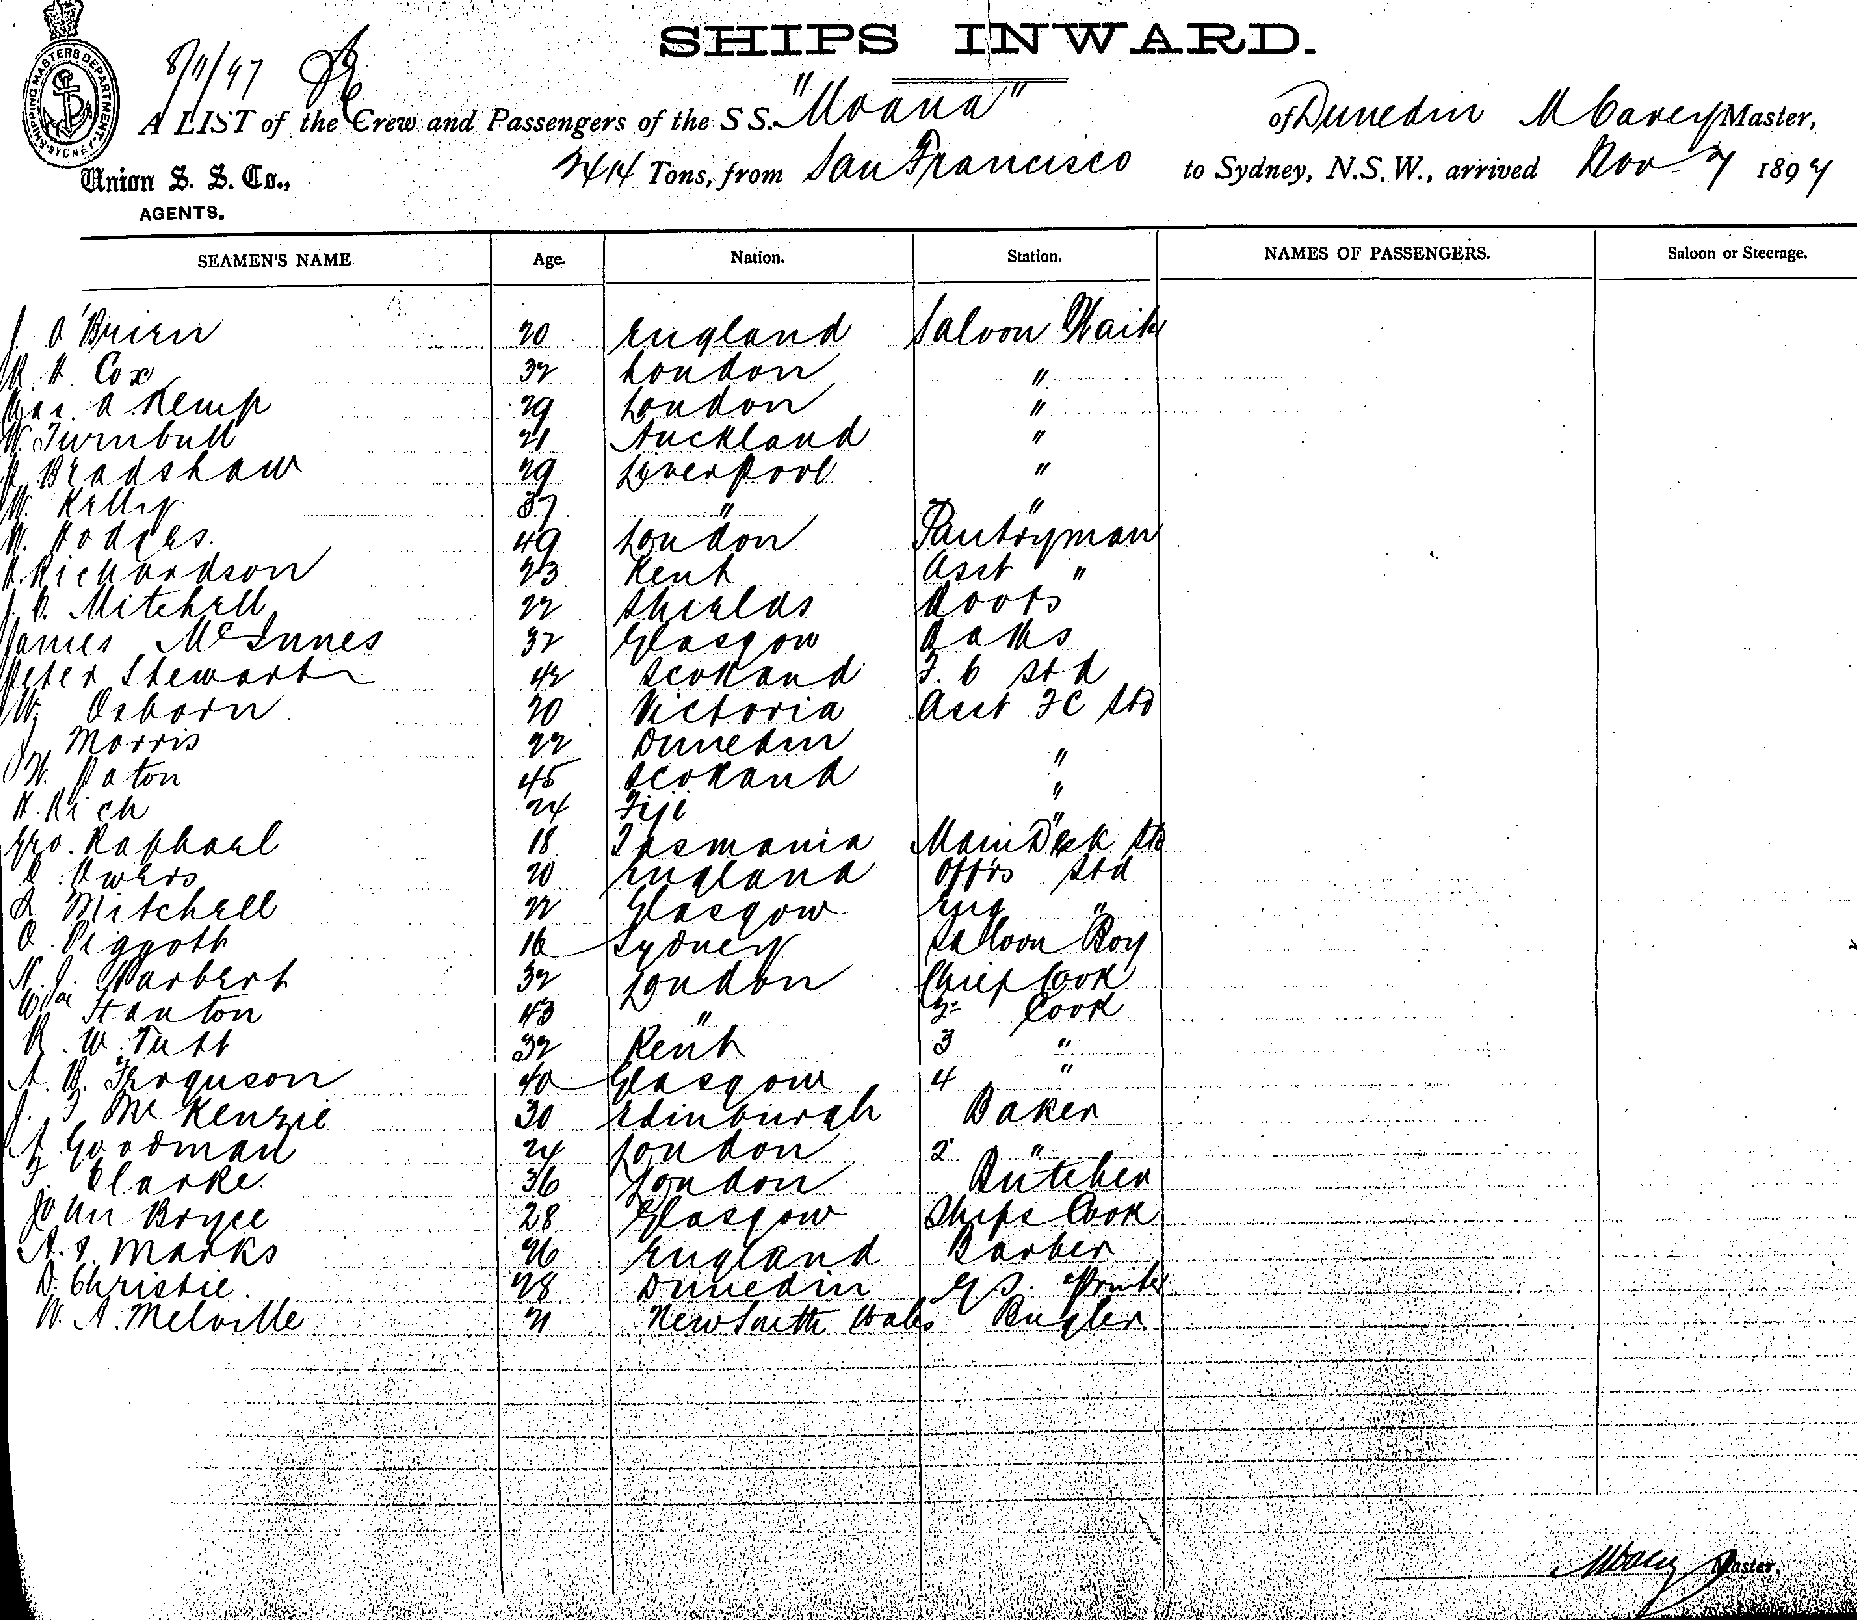 SHIPS INWARD.
8/11/97
A LIST of the Crew and Passengers of the S S. "Moana" of Dunedin M Carey Master,
Union S. S. Co., 2414 Tons, from San Francisco to Sydney, N.S.W., arrived Nov 7 1897
AGENTS.
SEAMEN'S NAME Age. Nation. Station. NAMES OF PASSENGERS. Saloon or Steerage.
J O'Brien 20 England Saloon Wait
Cox 32 London "
A Kemp 29 London "
W. Turnbull 21 Auckland "
Bradshaw 29 Liverpool "
W. Kelly 37 " "
W. Hodges. 49 London Pantryman
Richardson 23 Kent Asst "
Mitchell 22 Shields Boots
James McInnes 32 Glasgow Baths
Peter Stewart 42 Scotland F. C Std
W Osborn 20 Victoria Asst F C Std
J Morris 22 Dunedin "
W. Paton 45 Scotland "
Rich 24 Fiji "
Geo. Raphael 18 Tasmania Main Deck Std
Owers 20 England Offrs Std
Mitchell 22 Glasgow Eng "
Piggott 16 Sydney Saloon Boy
32 London Chief Cook
Wm Stanton 43 " 2 Cook
R. W. Tutt 32 Kent 3 "
A. B. Ferguson 40 Glasgow 4 "
J. F McKenzie 30 Edinburgh Baker
A Goodman 24 London 2 "
F Clarke. 36 London Butcher
John Bryce 28 Glasgow Ships Cook
A. J Marks 26 England Barber
D. Christie. 28 Dunedin
W. A. Melville 21 New South Wales Bugler
Master,